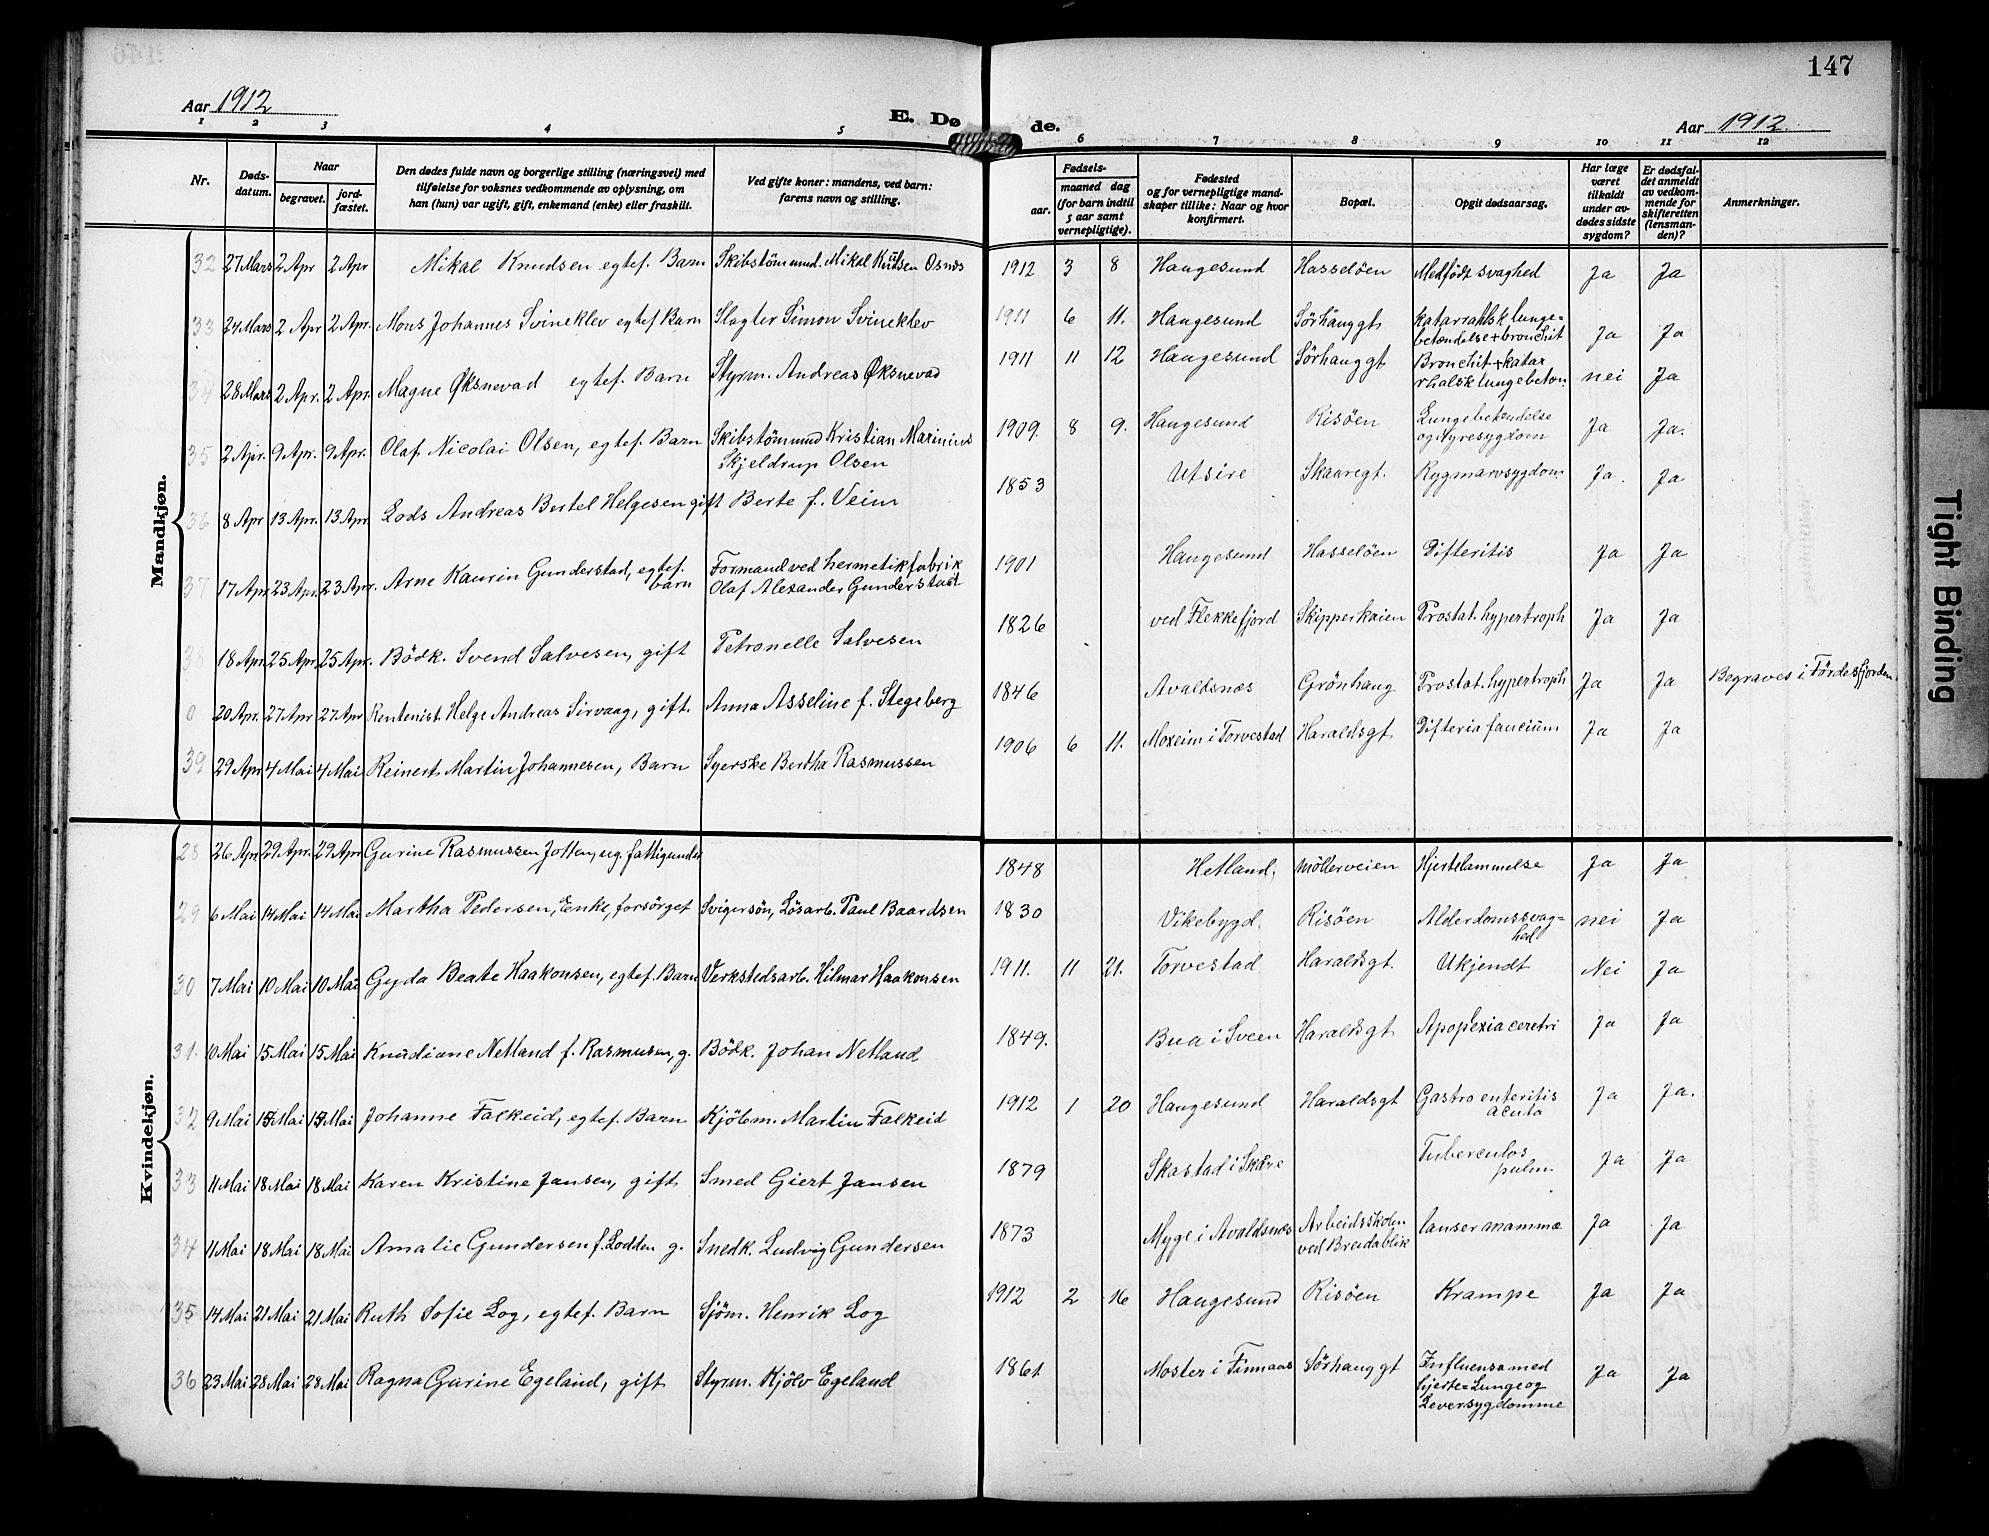 147
Aar 1912
E. Dø
de.
Aar 1912.
1 2 3 4 5 6 7 8 9 10 11 12
Nr.
Døds-
datum.
Naar
begravet.
jord-
fæstet.
Den dødes fulde navn og borgerlige stilling (næringsvei) med
tilføielse for voksnes vedkommende av oplysning, om
han (hun) var ugift, gift, enkemand (enke) eller fraskilt.
Ved gifte koner: mandens, ved barn:
farens navn og stilling.
Fødsels-
aar.
maaned dag
(for barn indtil
5 aar samt
vernepligtige).
Fødested
og for vernepligtige mand-
skaper tillike: Naar og hvor
konfirmert.
Bopæl.
Opgit dødsaarsag.
Har læge
været
tilkaldt
under av-
dødes sidste
sygdom?
Er dødsfal-
det anmeldt
av vedkom-
mende for
skifteretten
(lensman-
den)?
Anmerkninger.
Mandkjøn.
32 27 Mars 2 Apr 2 Apr Mikal Knudsen egtef. Barn Skibstömmd. Mikal Knutsen Osnes 1912 3 8 Haugesund Hasselöen Medfödt svaghed Ja Ja
33 24 Mars 2 Apr 2 Apr. Mons Johannes Svineklev egtef Barn Slagter Simon Svineklev 1911 6 11. Haugesund Sörhauggt katarrahlsk lunge=
betændelse + bronchit Ja Ja
34 28 Mars 2 Apr. 2 Apr. Magne Øksnevad egtef. Barn Styrm. Andreas Øksnevad 1911 11 12 Haugesund Sörhauggt Bronchit + katar
rhalsk lungebeton. nei Ja
35 2 Apr. 9 Apr. 9 Apr. Olaf Nicolai Olsen, egtef. Barn Skibstömmd Kristian Marinius
Skjeldrup Olsen 1909. 8 9. Haugesund Risöen Lungebetendelse
og Nyresygdom Ja Ja.
36 8 Apr 13 Apr. 13 Apr. Lods Andreas Bertel Helgesen gift Berte f. Veim 1853 Utsire Skaaregt. Rygmarvsygdom. Ja. Ja
37 17 Apr 23 Apr. 23 Apr. Arne Kaurin Gunderstad, egtef.
barn Formand ved hermetikfabrik
Olaf Alexander Gunderstad 1901 Haugesund Hasselöen Difteritis Ja Ja
38 18 Apr. 25 Apr. 25 Apr. Bödk. Svend Salvesen, gift Petronelle Salvesen 1826 ved Flekkefjord Skipperkaien Prostat. hypertroph Ja Ja
0 20 Apr. 27 Apr 27 Apr Rentenist Helge Andreas Sirvaag, gift. Anna Asseline f. Stegeberg 1846 Avaldsnæs Grönhaug Prostat. hypertroph Ja Ja Begraves i Fördesfjorden.
39 29 Apr 4 Mai 4 Mai Reinert Martin Johannesen, Barn Syerske Bertha Rasmussen 1906 6 11. Moxeim i Torvestad Haraldsgt Difteria faucium Ja Ja
Kvindekjøn.
28 26 Apr 29 Apr. 29 Apr Gurine Rasmussen Jotten, ug. fattigunder 1848 Hetland. Möllerveien Hjertelammelse Ja Ja
29 6 Mai 14 Mai 14 Mai Martha Pedersen, Enke, forsörget Svigersön, Lösarb. Paul Baardsen 1830 Vikebygd. Risöen Alderdomssvag=
hed nei Ja
30 7 Mai 10 Mai 10 Mai Gyda Beate Haakonsen, egtef. Barn Verkstedsarb. Hilmar Haakonsen 1911. 11 21. Torvestad Haraldsgt. Ukjendt Nei Ja
31. 10 Mai 15 Mai 15 Mai Knudiane Netland f. Rasmussen, g. Bödk. Johan Netland 1849. Bua i Sveen Haraldsgt Apoplexia ceretri Ja Ja
32 9 Mai 15 Mai 15 Mai Johanne Falkeid, egtef. Barn Kjöbm. Martin Falkeid 1912 1 20 Haugesund Haraldsgt Gastro enteritis
acuta Ja Ja.
33 11 Mai 18 Mai 18 Mai Karen Kristine Jansen, gift Smed Giert Jansen 1879 Skastad i Skåre Tuberculos
pulm. Ja Ja
34 11 Mai 18 Mai 18 Mai Amalie Gundersen f. Lodden g. Snedk. Ludvig Gundersen 1873 Myge i Avaldsnæs Arbeidsskolen
ved Breidablik canser mammæ Ja Ja
35 14 Mai 21 Mai 21 Mai Ruth Sofie Log, egtef. Barn Sjöm. Henrik Log 1912 2 16 Haugesund Risöen Krampe Ja Ja
36 23 Mai 28 Mai 28 Mai Ragna Gurine Egeland, gift Styrm. Kjölv Egeland 1861. Moster i Finnaas Sörhauggt Influensa med
hjerte= Lunge og
Leversygdomme Ja Ja
Tight Binding